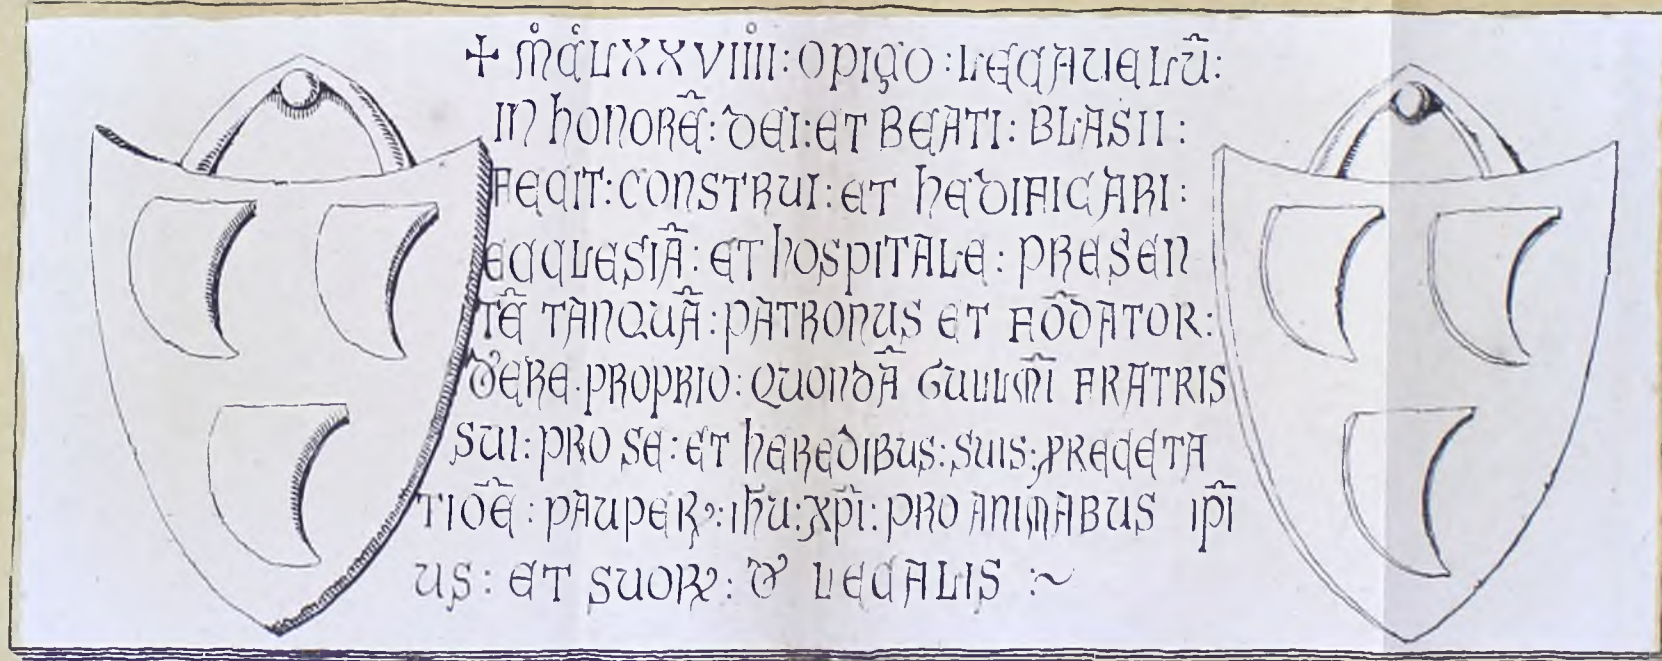 ✠ M̊C̊LXXVIIII̊: OPIÇO : LECAUELŪ:
IN HONORĒ: DEI: ET BEATI: BLASII:
FECIT: CONSTRUI: ET HEDIFICARI:
ECCLESIĀ: ET HOSPITALE: PRESEN
TĒ TANQUĀ: PATRONUS ET FŌDATOR:
D'ERE. PROPRIO: QUONDĀ GULLMĪ FRATRIS
SUI: PRO SE: ET HEREDIBUS: SUIS: PRECETA
TIŌĒ: PAUPERꝜ: IHŪ: XPĪ: PRO ANIMABUS IPĪ
US: ET SUORꝜ: D' LECALIS :~